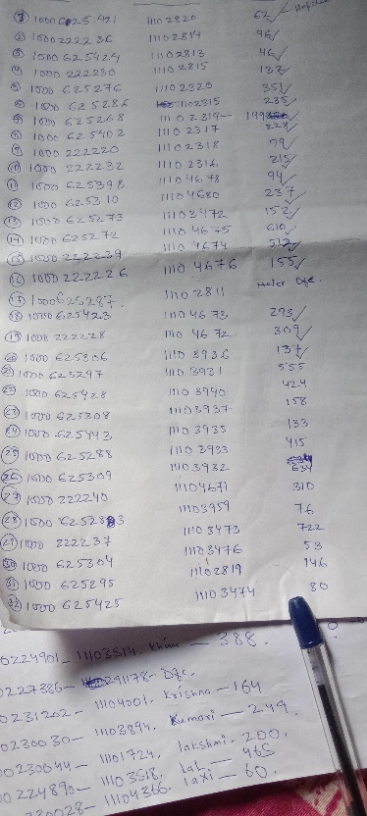 ① 1000625421 11102820 62 ✓
② 1000222236 11102814 46 ✓
③ 1000625424 11102813 46 ✓
④ 1000 222230 11102815 132 ✓
⑤ 1000 625276 11102320 351 ✓
⑥ 1000 625286 11102315 235 ✓
⑦ 1000 625268 11102319 199
⑧ 1000 625402 11102317 228 ✓
⑨ 1000 222220 11102318 99 ✓
⑩ 1000 222232 11102316 215 ✓
⑪ 1000 625398 11104648 94 ✓
⑫ 1000 625310 11104680 237 ✓
⑬ 1000 625273 11103472 152 ✓
⑭ 1000 625272 1110 4675 610 ✓
⑮ 1000 222239 1110 4674 512 ✓
⑯ 1000 222226 1110 4676 155 ✓
⑰ 1000625287 1110 2811 meter Dfc.
⑱ 1000 625423 1110 4673 293 ✓
⑲ 1000 222228 1110 4672 309 ✓
⑳ 1000 625306 1110 3936 137 ✓
㉑ 1000 625297 1110 3931 555
㉒ 1000 625428 1110 3940 424
㉓ 1000 625308 1110 3937 158
㉔ 1000 625443 1110 3935 133
㉕ 1000 625288 1110 3933 415
㉖ 1000 625309 1110 3932 634
㉗ 1000 222240 11104671 310
㉘ 1000 625283 11103959 76
㉙ 1000 222237 1110 3473 722
㉚ 1000 625304 1110 3476 58
㉛ 1000 625295 11102819 146
㉜ 1000 625425 11103474 80
00224901 - 11103514. khim — 388.
0227386 - 291178 - Dfc.
00231202 - 11104001. Krishna - 164
00230030 - 11103894. Kumari — 249.
00230044 - 11101724. lakshmi - 200.
00224890 - 11103518. Lal - 465
220028 - 11104366. laxi - 60.